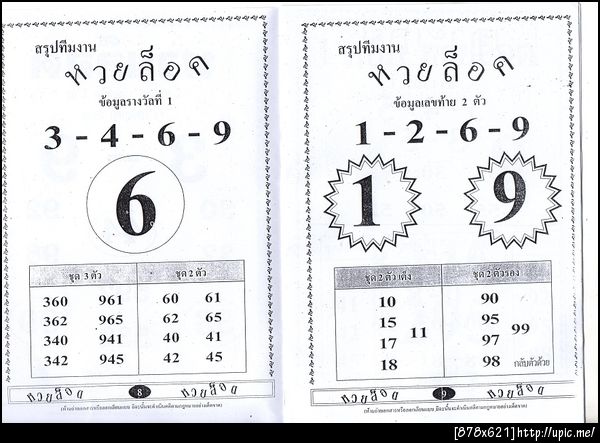 สรุปทีมงาน
หวยล็อค
ข้อมูลรางวัลที่ 1
3 - 4 - 6 - 9
6
ชุด 3 ตัว ชุด 2 ตัว
360 961 60 61
362 965 62 65
340 941 40 41
342 945 42 45
หวยล็อค 8 หวยล็อค
สรุปทีมงาน
หวยล็อค
ข้อมูลเลขท้าย 2 ตัว
1 - 2 - 6 - 9
1 9
ชุด 2 ตัว เต็ง ชุด 2 ตัวรอง
10 90
15 95
11 99
17 97
18 98 กลับตัวด้วย
หวยล็อค 9 หวยล็อค
[878x621]http://upic.me/